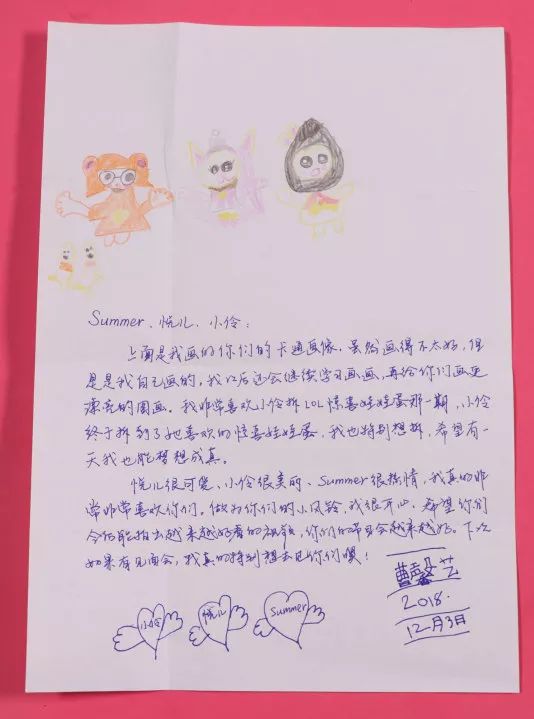 Summer、悦儿、小伶：
上面是我画的你们的卡通画像，虽然画得不太好，但
是是我自己画的，我以后还会继续学习画画，再给你们画更
漂亮的图画。我非常喜欢小伶拆LOL惊喜娃娃蛋那一期，小伶
终于拆到了她喜欢的惊喜娃娃蛋，我也特别想拆，希望有一
天我也能梦想成真。
悦儿很可爱、小伶很美丽、Summer很热情，我真的非
常非常喜欢你们。做为你们的小风铃，我很开心，希望你们
今后能拍出越来越好看的视频，你们的节目会越来越好。下次
如果有见面会，我真的特别想去见你们噢！
小伶 悦儿 Summer
曹馨艺
2018.
12月3日